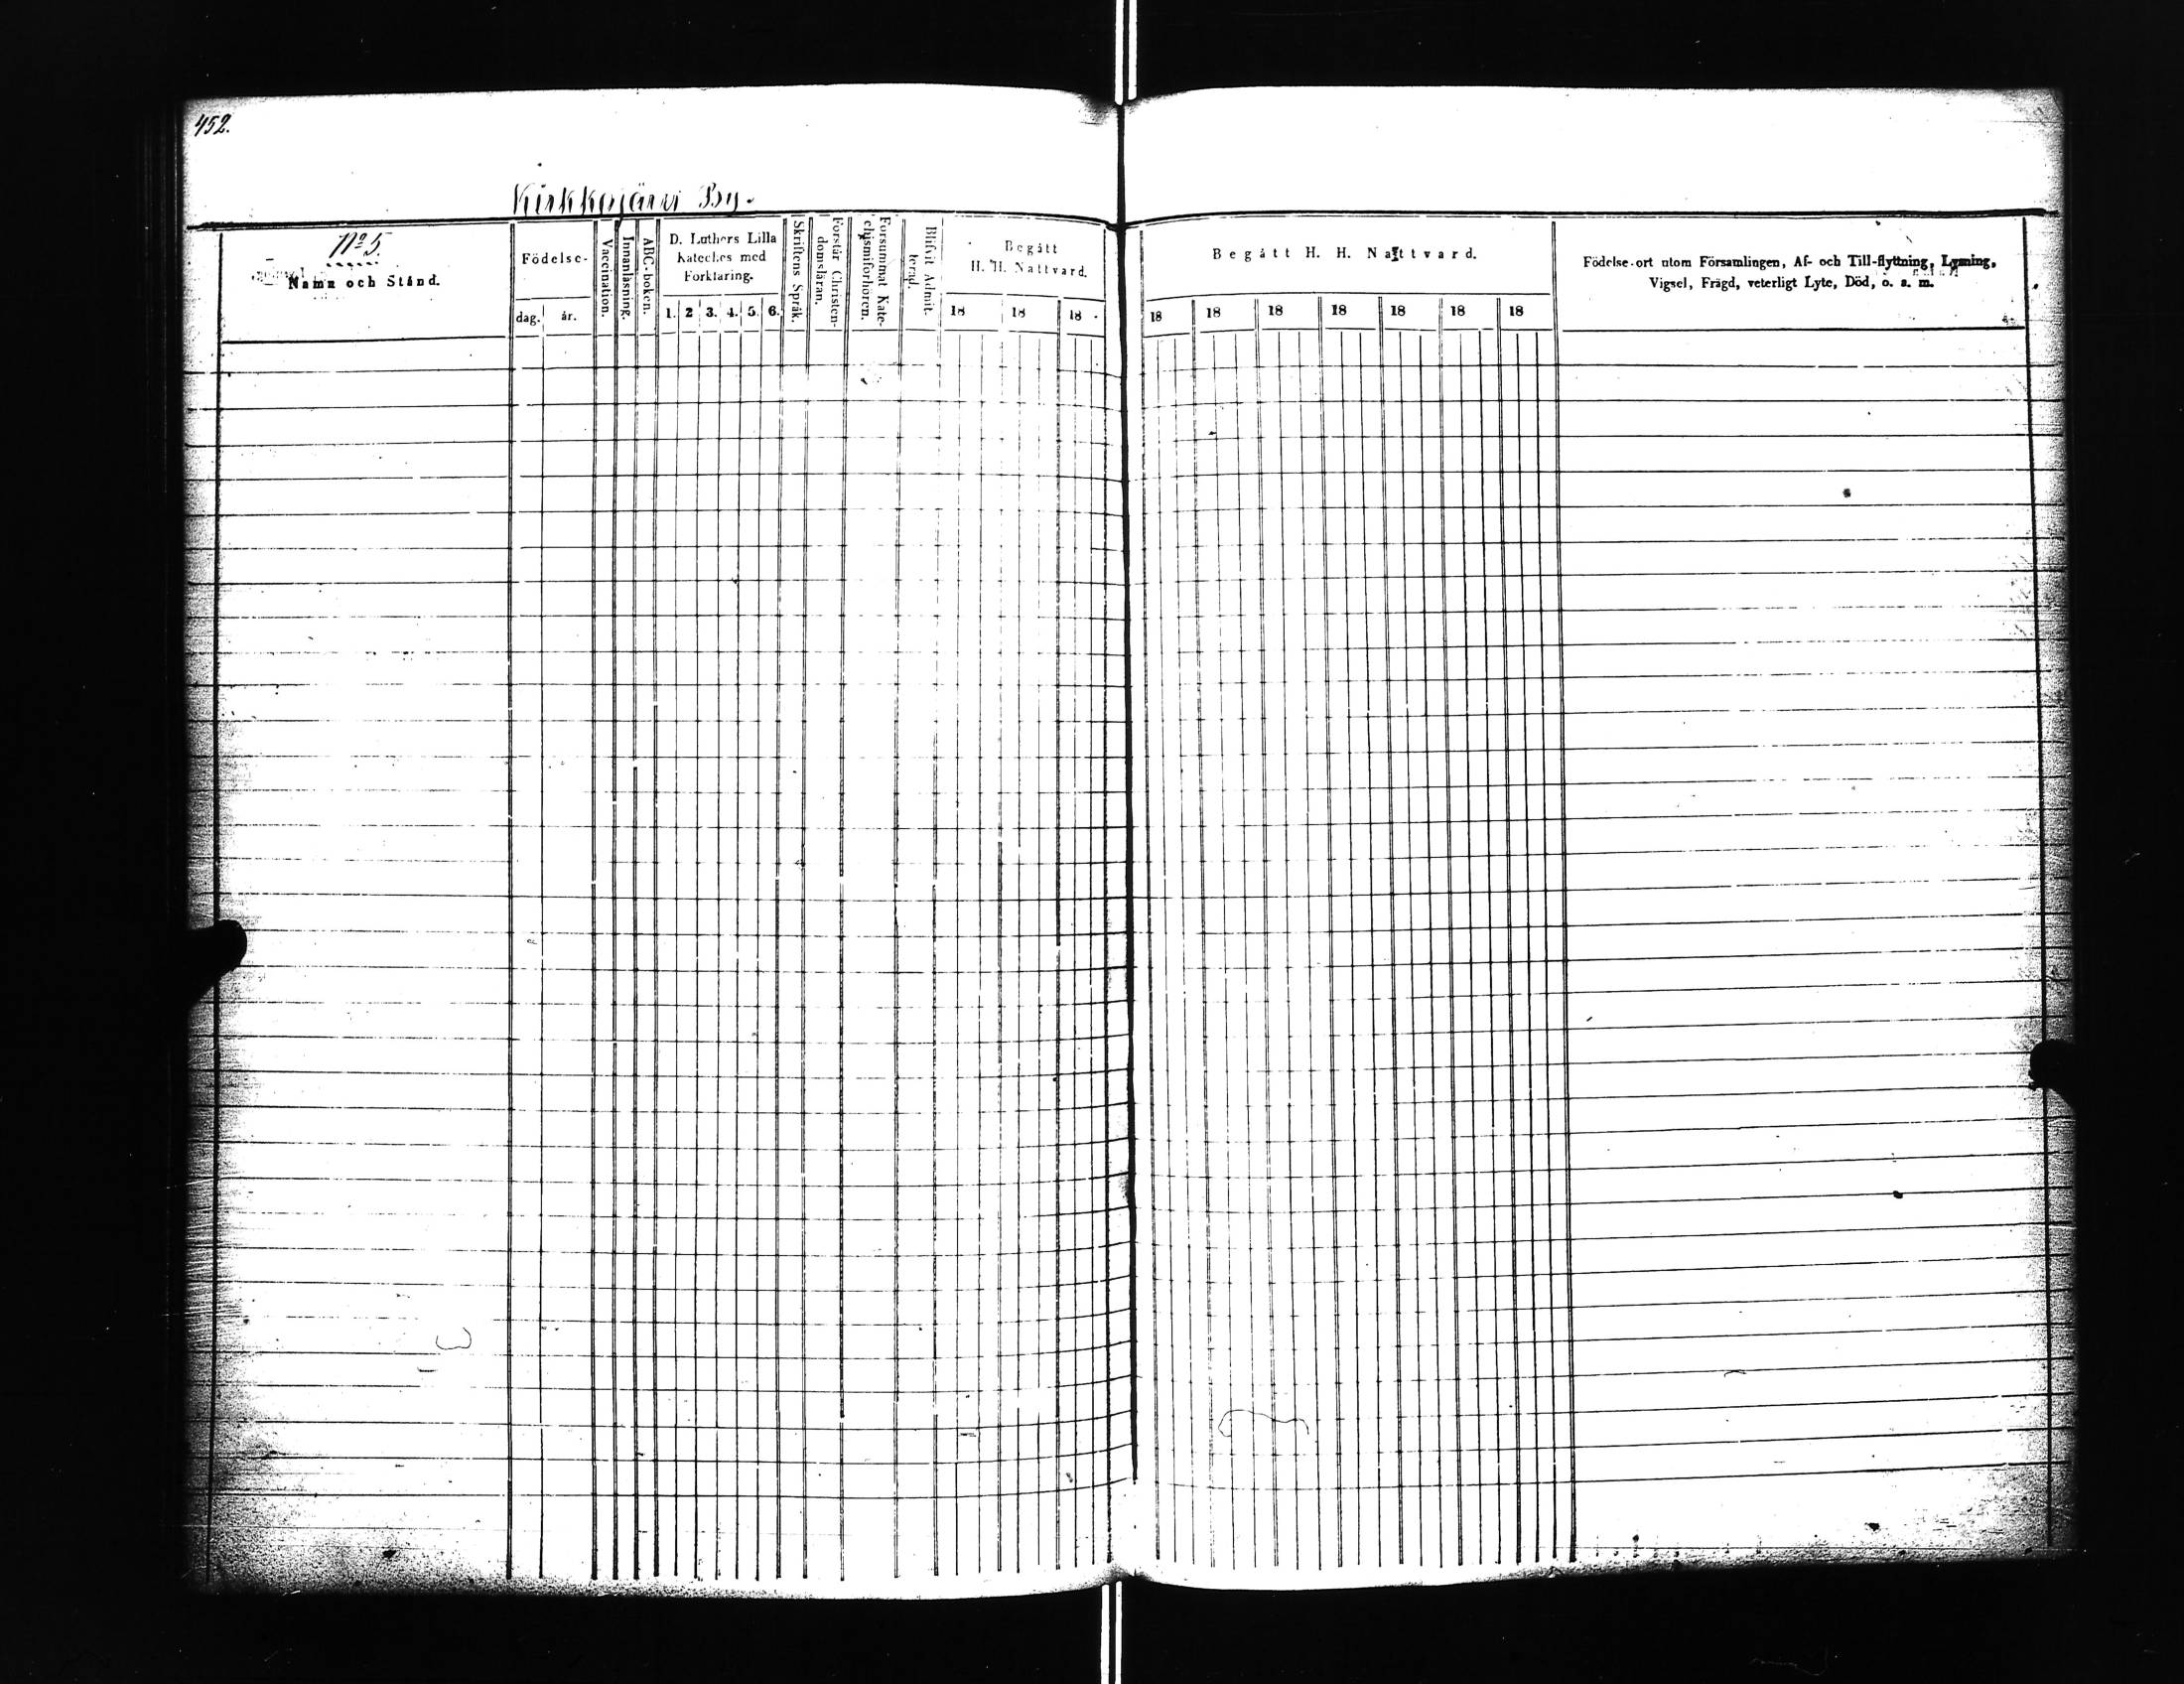 452.
Kirkkojärvi By.
No 5.
Namn och Stånd.
Födelse-
dag. år.
Vaccination.
Innanläsning.
ABC-boken.
D. Luthers Lilla
Kateches med
Förklaring.
1. 2 3. 4. 5. 6.
Skriftens Språk.
Förstår Christen-
domsläran.
Försummat Kate-
chismiförhören.
Blifvit Admit-
terad.
Begått
H. H. Nattvard.
18 18 18
Begått H. H. Nattvard.
18 18 18 18 18 18 18
Födelse-ort utom Församlingen, Af- och Till-flyttning, Lysning,
Vigsel, Frägd, veterligt Lyte, Död, o. s. m.